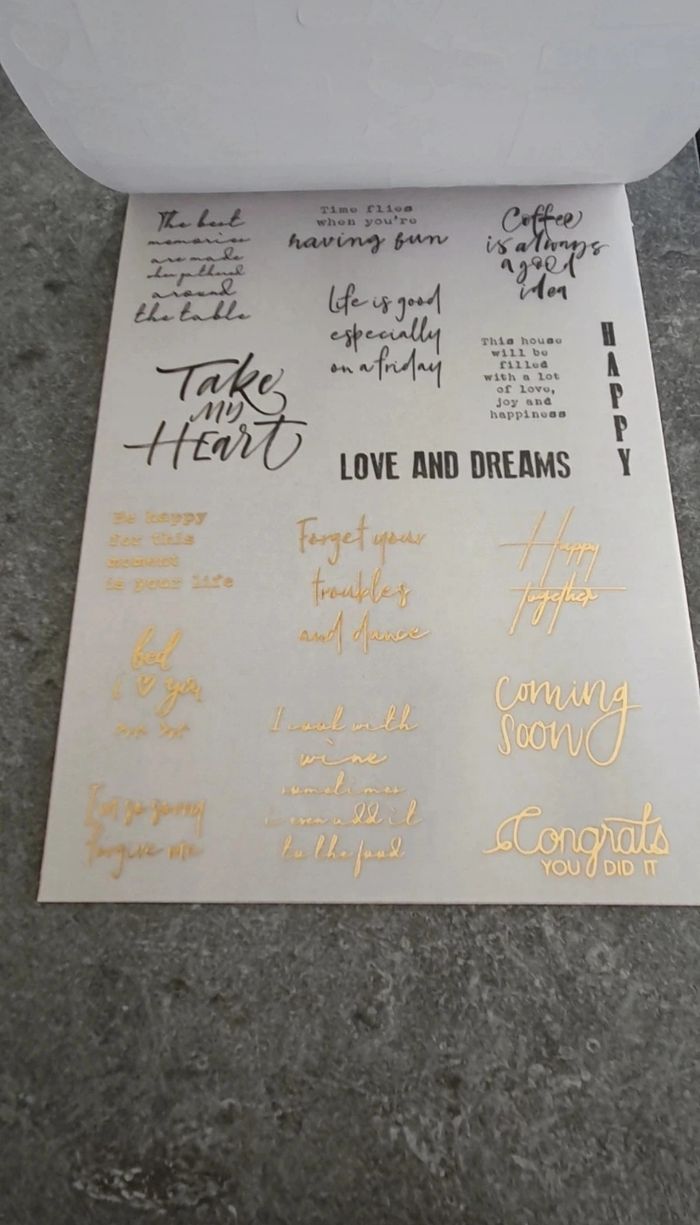 The best
memories
are made
when gathered
around
the table
Time flies
when you're
having fun
Coffee
is always
a good
idea
Life is good
especially
on a friday
This house
will be
filled
with a lot
of love,
joy and
happiness
HAPPY
Take
my
Heart
LOVE AND DREAMS
Be happy
for this
moment
is your life
Forget your
troubles
and dance
Happy
together
bed
i ♡ you
coming
soon
I cook with
wine
sometimes
i even add it
to the food
I'm so sorry
forgive me
Congrats
YOU DID IT